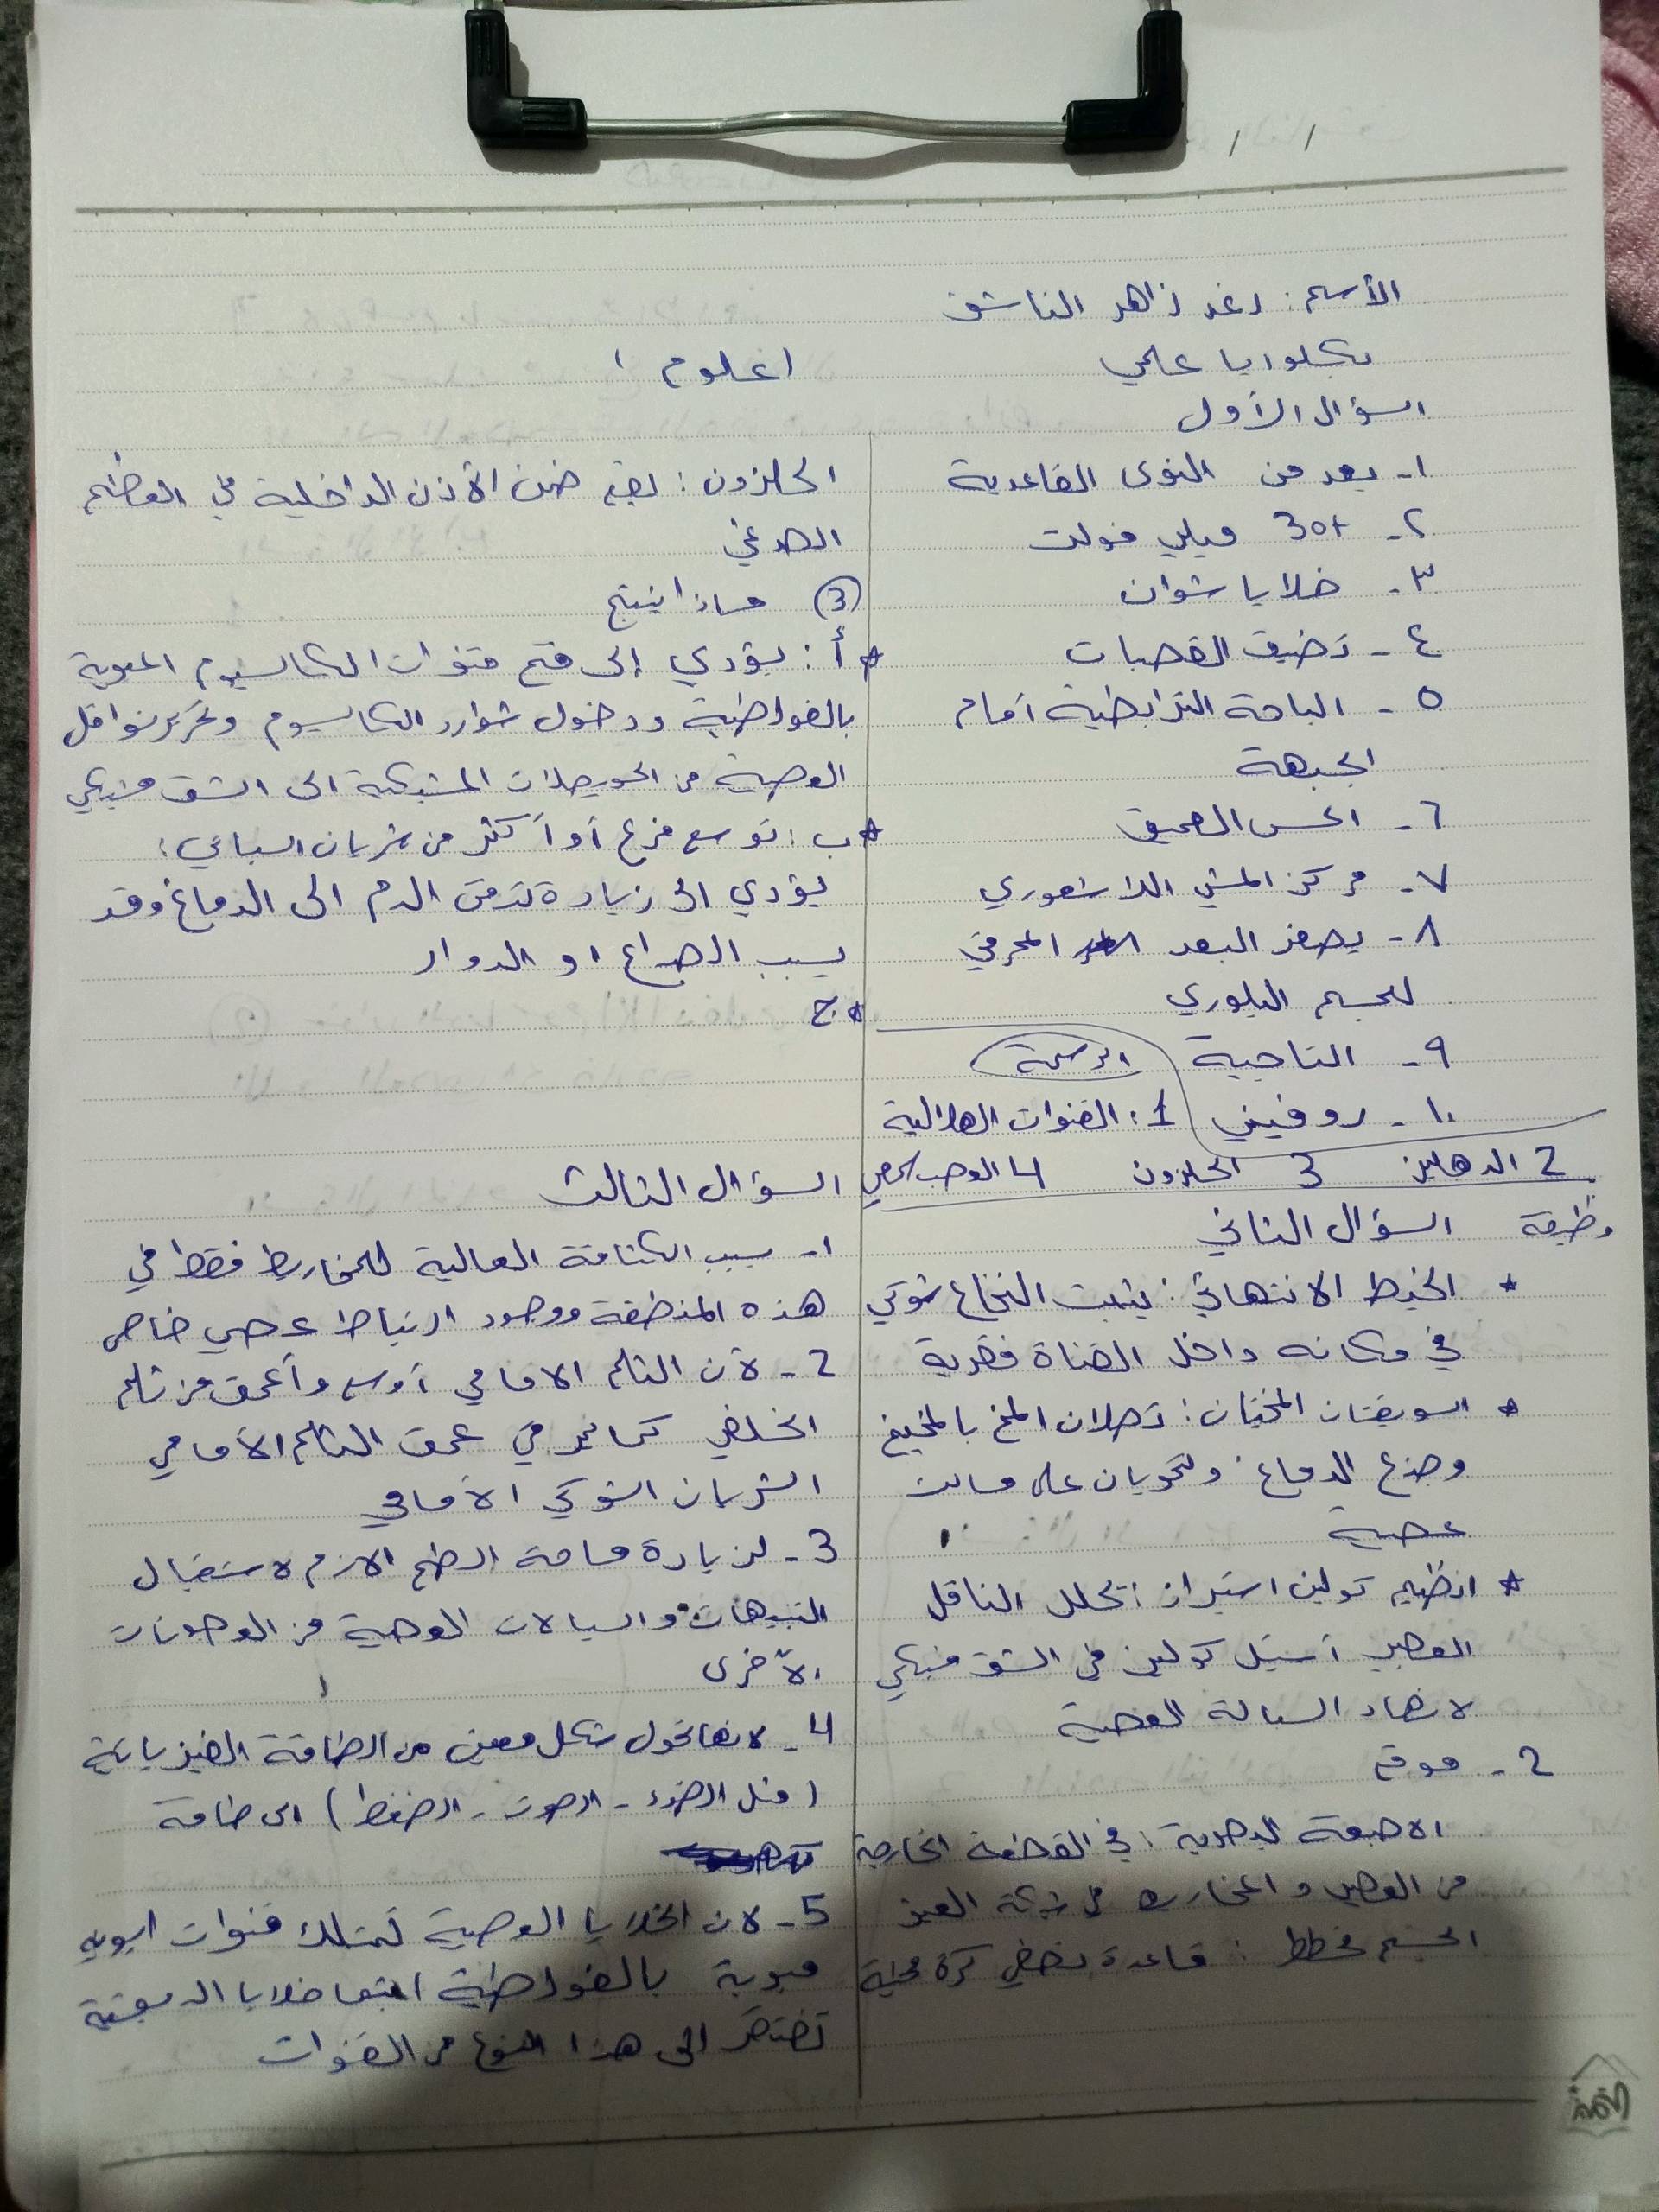 الأسم: رغد زاهر الناشف
بكلوريا علمي
اعلوم ١
السؤال الأول
١- يعد من النوى القاعدية
٢- +30 ميلي فولت
٣- خلايا شوان
٤- تضيق القصبات
٥- الباحة الترابطية أمام
الجبهة
٦- الحس العميق
٧- مركز المشي اللاشعوري
٨- يصغر البعد المحرقي
للجسم البلوري
٩- التاجية
١٠- روفيني
الرسمة
1: القنوات الهلالية
2 الدهليز 3 الحلزون 4 العصب
السؤال الثاني وظيفة
* الخيط الانتهائي: يثبت النخاع شوكي
في مكانه داخل القناة فقرية
* السويقتان المخيتان: تصلان المخ بالمخيخ
وجذع الدماغ وتحويان على مسالك
عصبية
* انظيم كولين استيراز: تحلل الناقل
العصبي أستيل كولين في الشق مشبكي
لانهاء السيالة العصبية
2- موقع
الاصبغة البصرية: في القطعة الخارجية
من العصي و المخاريط في شبكة العين
الجسم مخطط: قاعدة نصفي كرة مخية
الحلزون: يقع ضمن الأذن الداخلية في العظم
الصدغي
③ ماذا ينتج
* أ: يؤدي إلى فتح قنوات الكالسيوم المبوبة
بالفولطية ودخول شوارد الكالسيوم وتحرير نواقل
العصبية من الحويصلات المشبكية الى الشق مشبكي
* ب: توسع فرع أو أكثر من شريان السباتي:
يؤدي الى زيادة تدفق الدم الى الدماغ وقد
يسبب الصداع او الدوار
* ج
السؤال الثالث
١- بسبب الكثافة العالية للمخاريط فقط في
هذه المنطقة ووجود ارتباط عصبي خاص
2- لأن الثلم الامامي أوسع وأعمق من ثلم
الخلفي كما نجد في عمق الثلم الأمامي
الشريان الشوكي الأمامي
3- لزيادة مساحة السطح الازم لاستقبال
التنبيهات والسيالات العصبية من العصبونات
الأخرى
4- لانها تحول شكل معين من الطاقة الفيزيائية
(مثل الضوء - الصوت - الضغط) الى طاقة
5- لان الخلايا العصبية تمتلك قنوات ايونية
مبوبة بالفولطية خلايا الدبقية
تفتقر الى هذا النوع من القنوات